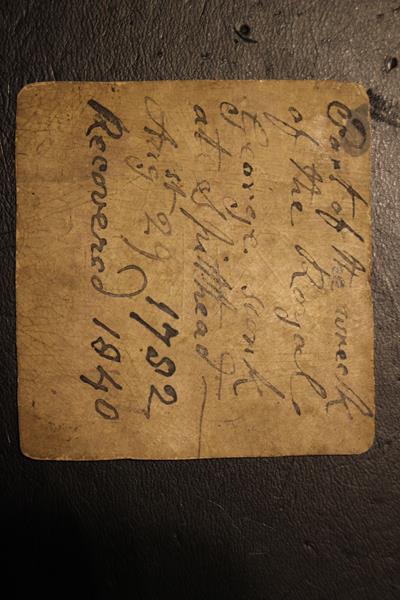 Part of the wreck
of the Royal
George sunk
at Spithead
Augst 29 1782
Recovered 1840